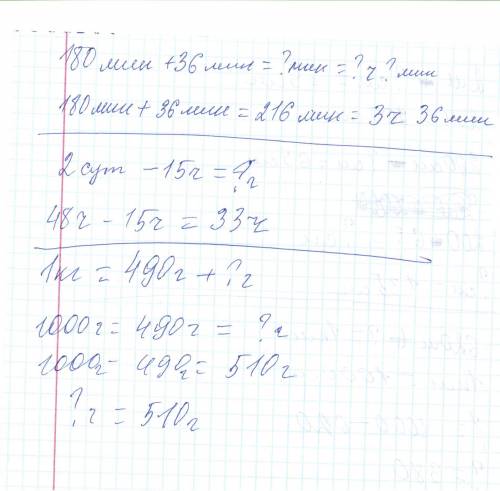 180 мин + 36 мин = ? мин = ? ч ? мин
180 мин + 36 мин = 216 мин = 3ч 36 мин
2 сут - 15ч = ? ч
48ч - 15ч = 33ч
1кг = 490г + ? г
1000г = 490г = ? г
1000г - 490г = 510г
? г = 510г